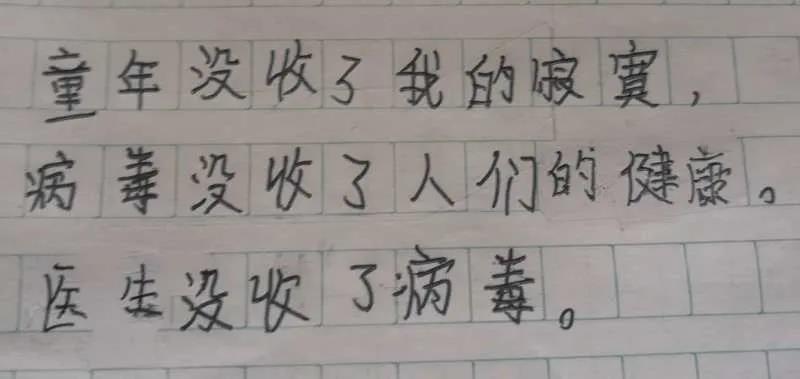 童年没收了我的寂寞，
病毒没收了人们的健康。
医生没收了病毒。